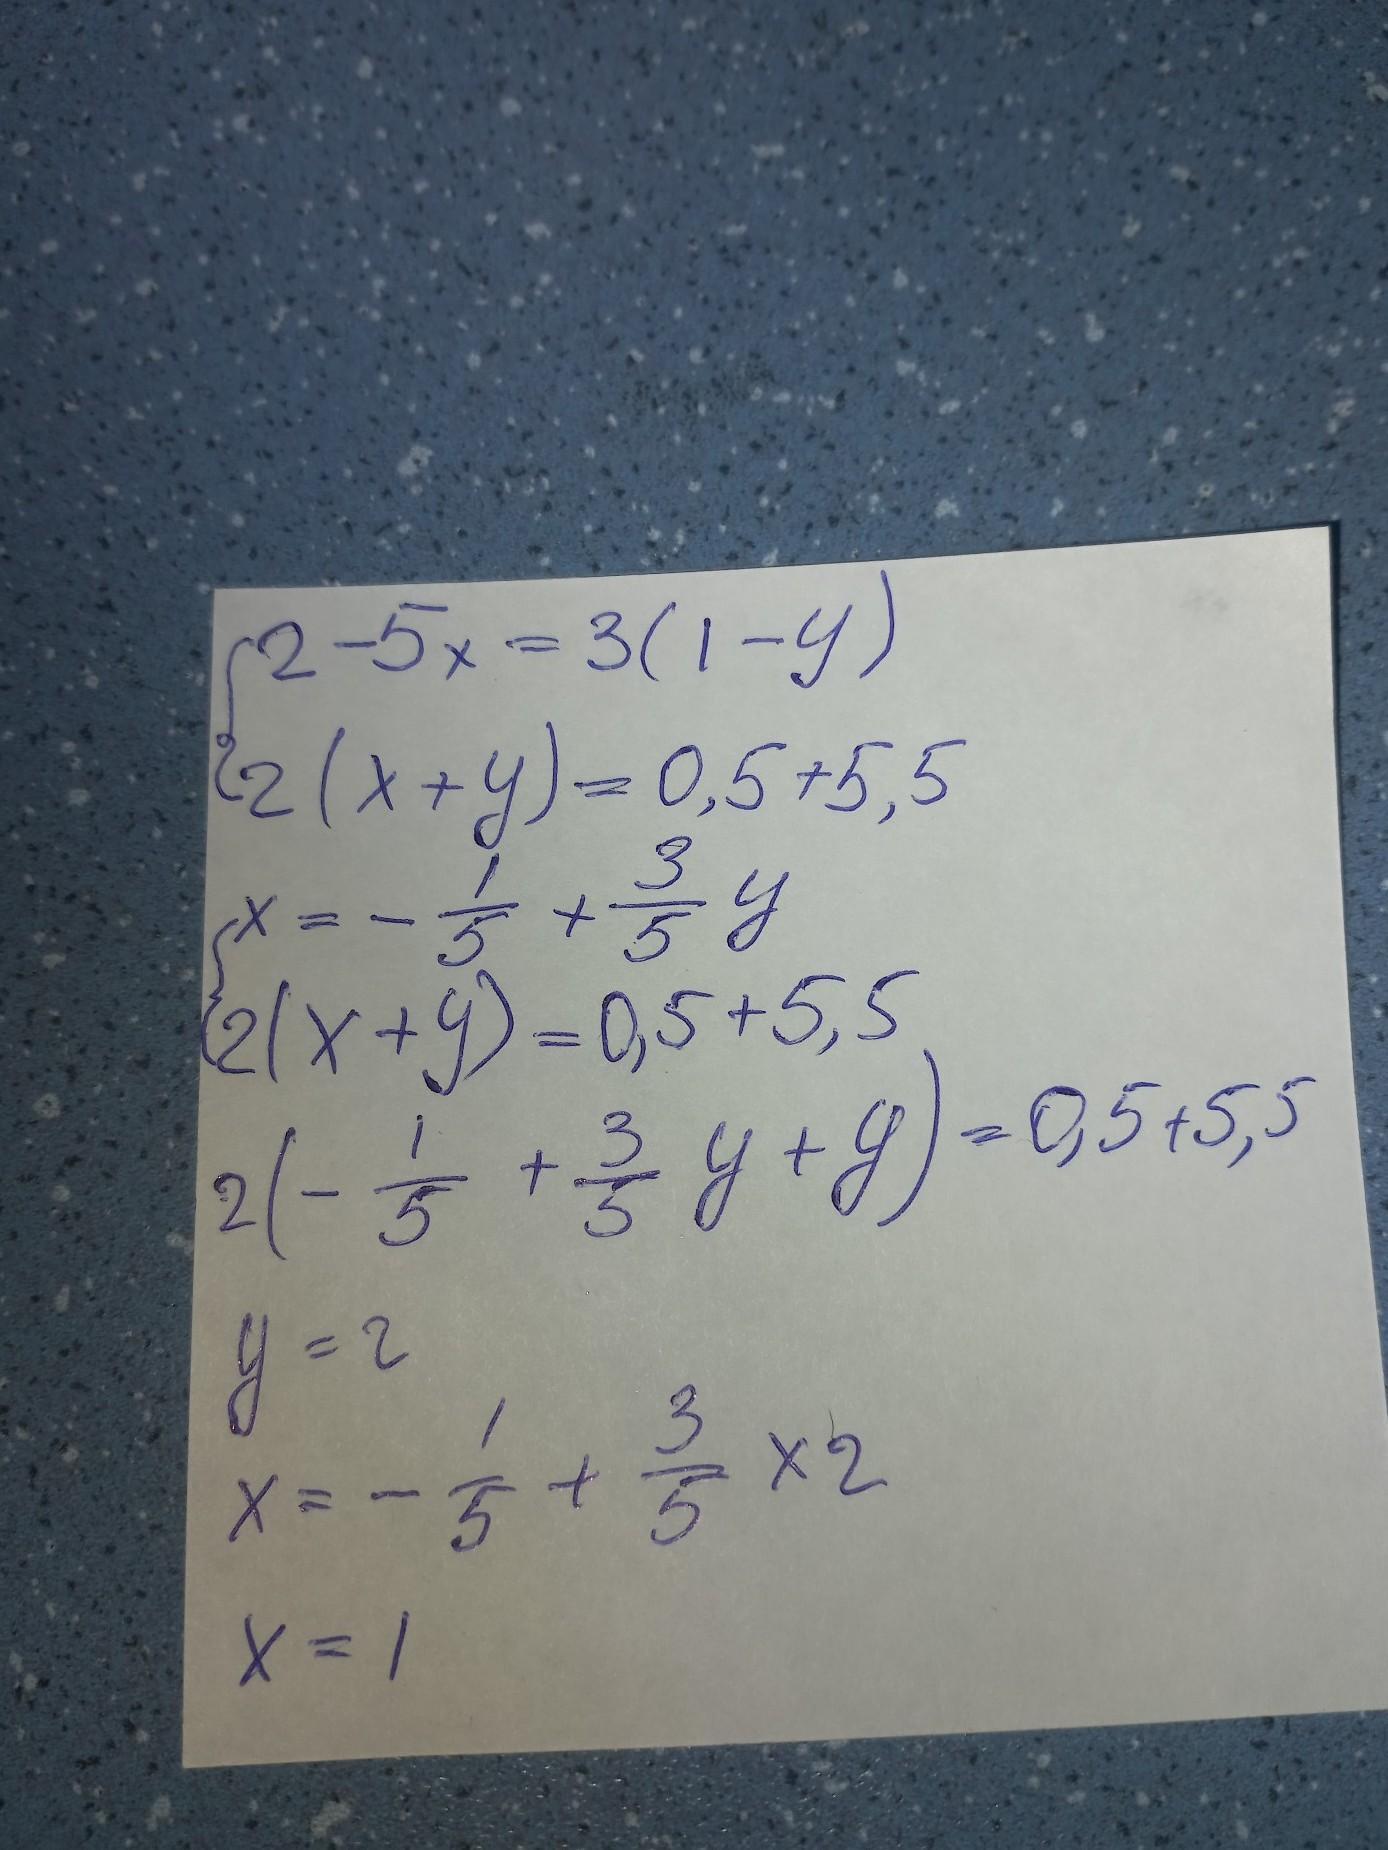 2-5x=3(1-y)
2(x+y)=0,5+5,5
x=-1/5+3/5y
2(x+y)=0,5+5,5
2(-1/5+3/5y+y)=0,5+5,5
y=2
x=-1/5+3/5×2
x=1